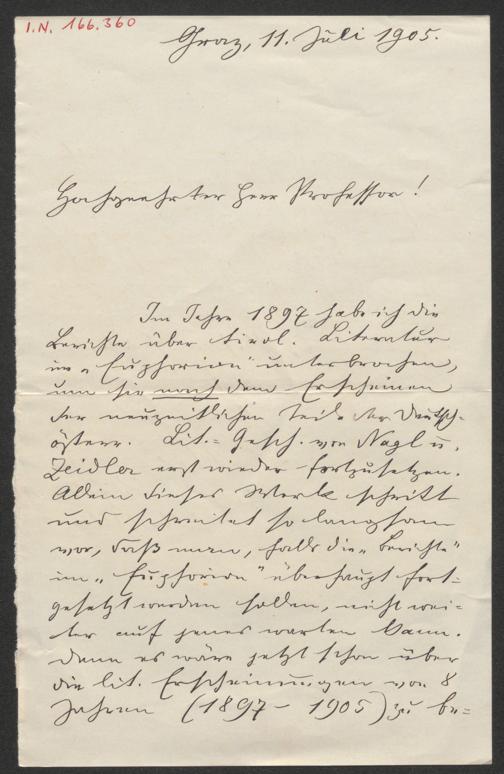 I.N. 166.360
Graz, 11. Juli 1905.
Hochgeehrter Herr Professor!
Im Jahre 1897 habe ich die
Berichte über tirol. Literatur
im „Euphorion" unterbrochen,
um sie nach dem Erscheinen
der neuzeitlichen Teile der Deutsch-
österr. Lit.= Gesch. von Nagl u.
Zeidler erst wieder fortzusetzen.
Allein dieses Werk schritt
und schreitet so langsam
vor, daß man, falls die „Berichte"
im „Euphorion" überhaupt fort=
gesetzt werden sollen, nicht wei=
ter auf jenes warten kann.
Denn es wäre jetzt schon über
die lit. Erscheinungen von 8
Jahren (1897 - 1905) zu be=